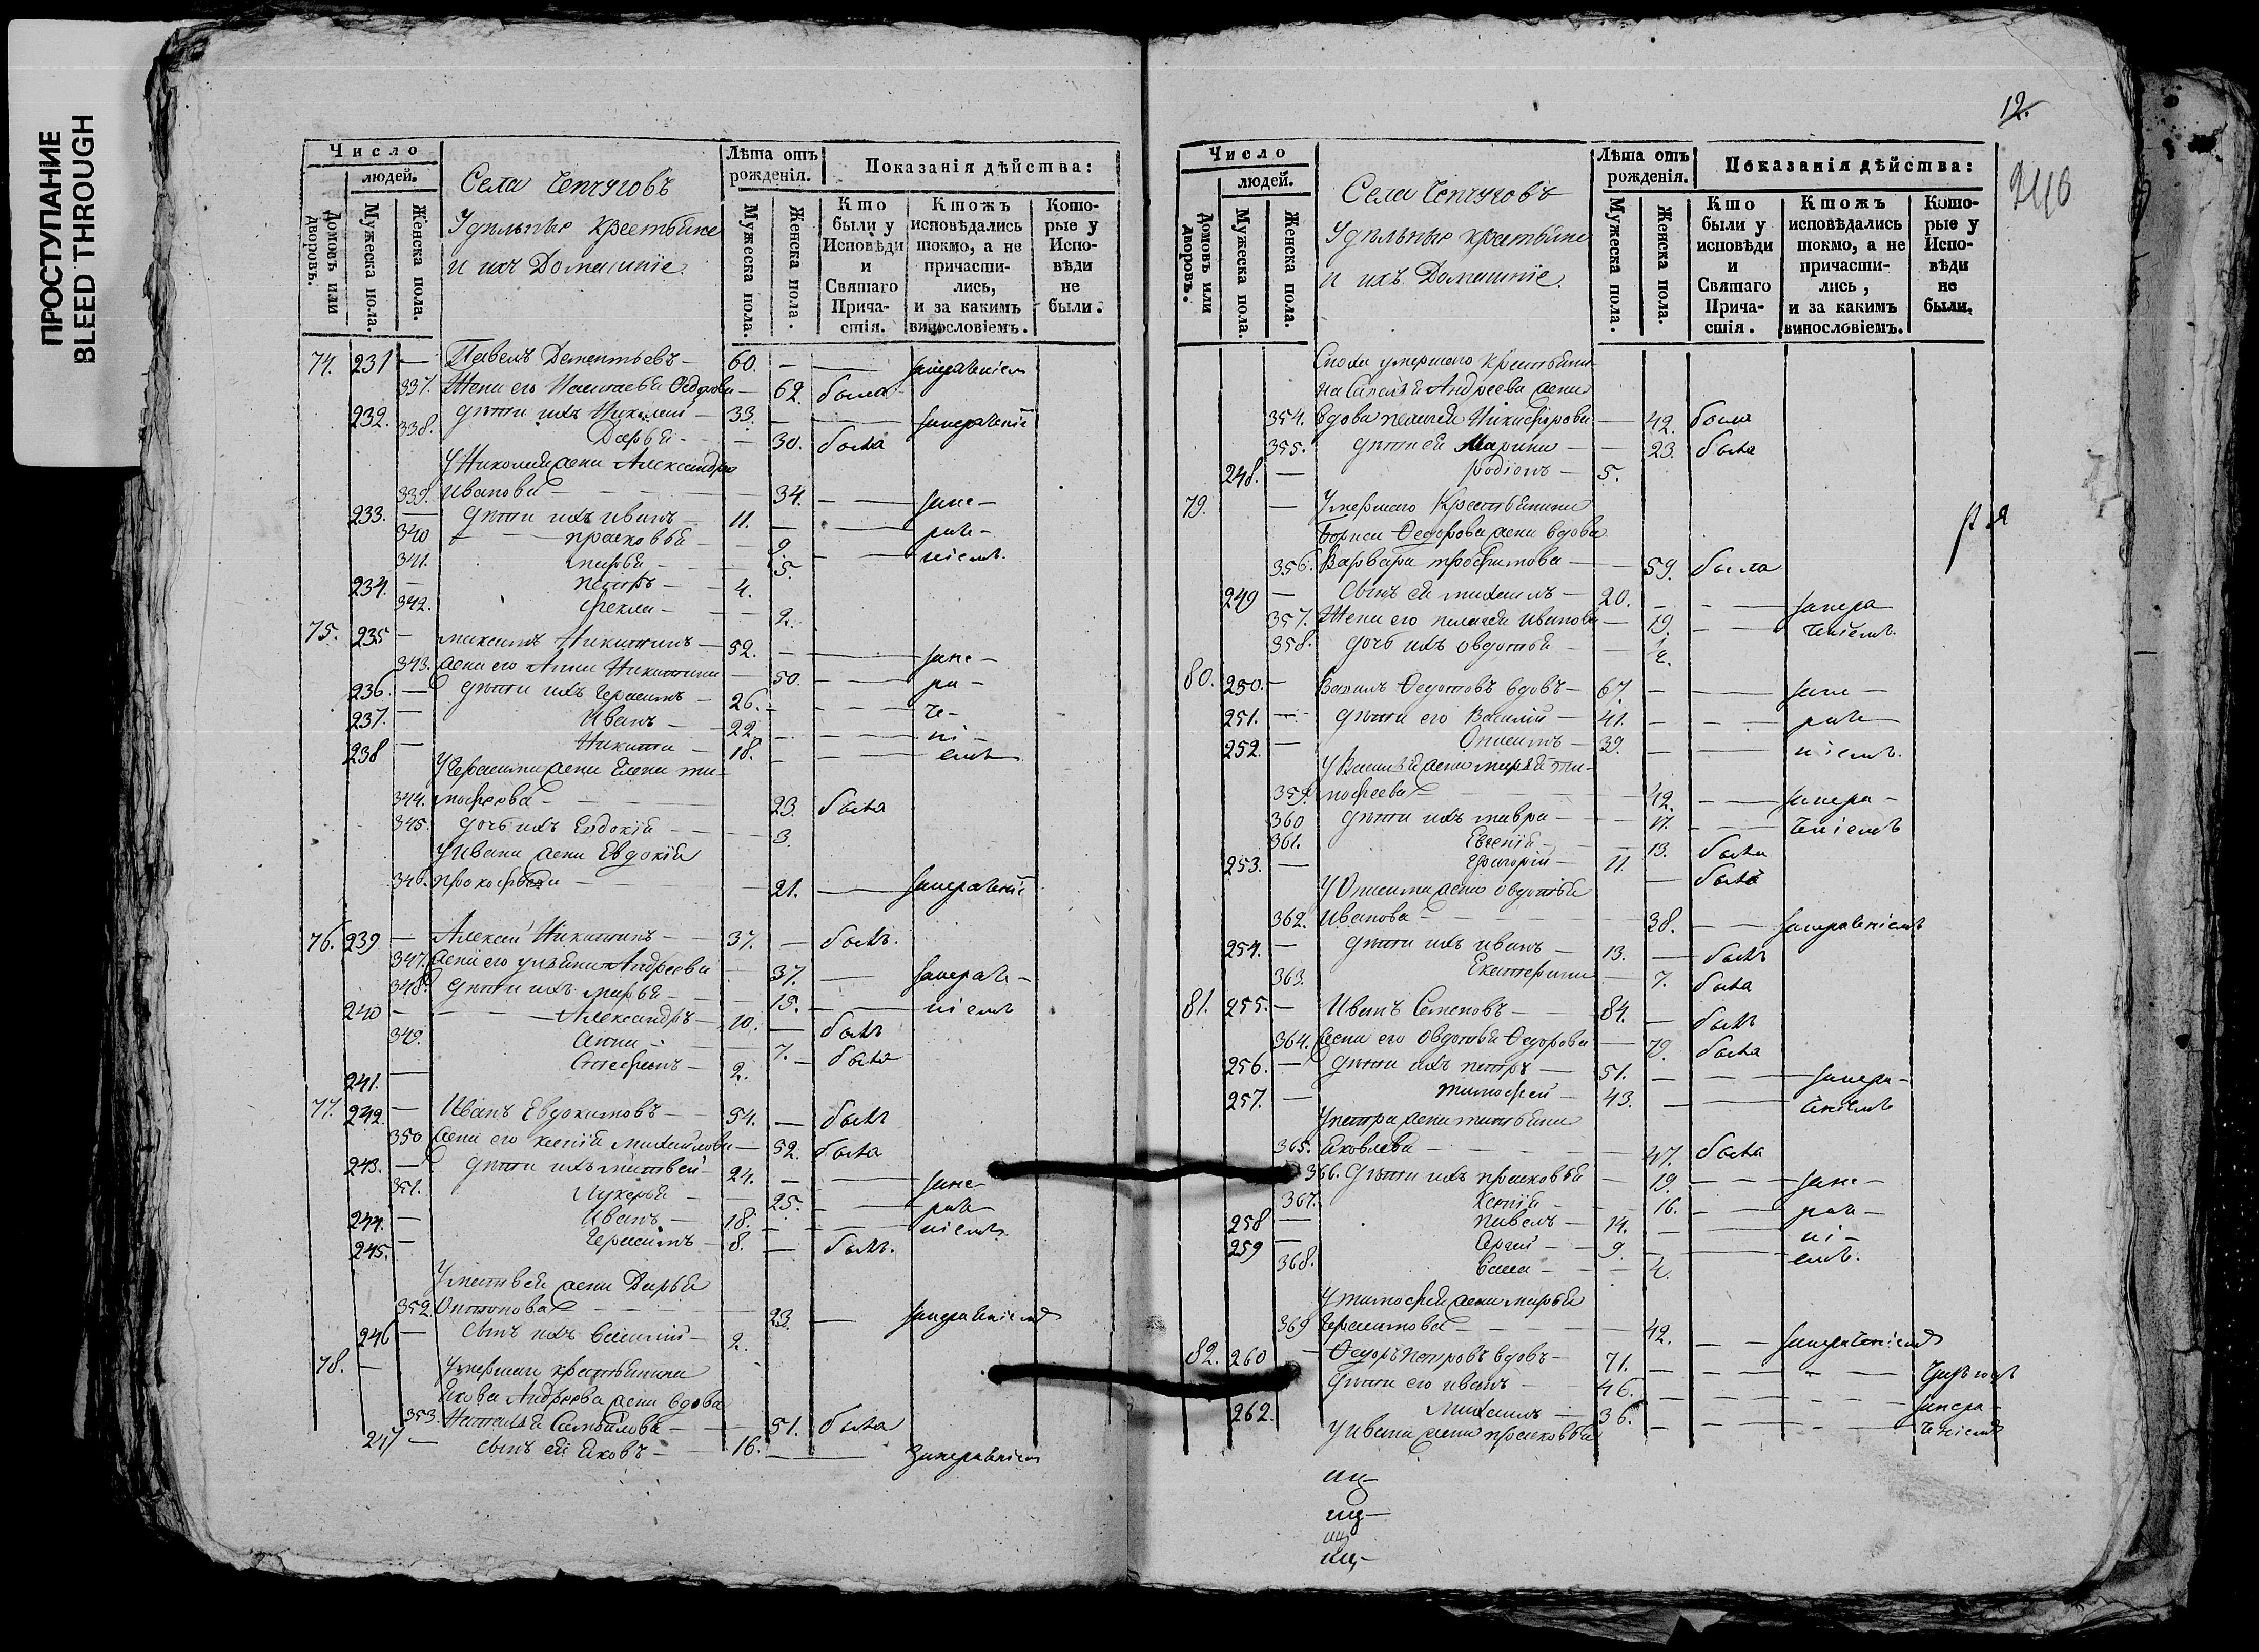 ПРОСТУПАНИЕ
BLEED THROUGH
Число
людей.
Домовъ или дворовъ.
Мужеска пола.
Женска пола.
Села Чепчуговъ
Удѣльные крестьяне
и ихъ Домашніе.
Лѣта отъ рожденія.
Мужеска пола.
Женска пола.
Показанія дѣйства:
Кто были у Исповѣди и Святаго Причастія.
Ктожъ исповѣдались токмо, а не причастились, и за какимъ винословіемъ.
Которые у Исповѣди не были.
74. 231 — Павелъ Дементьевъ — 60.
337. Жена его Федорова — 62. была
232. дѣти ихъ Николай — 33.
338. Дарья — 30. была
У Николая жена Александра
339. Иванова — 34. — запе-
233. дѣти ихъ Иванъ — 11. — раче-
340 Прасковья 9. — ніемъ.
341. Марья 5.
234. Петръ — 4.
342. Фекла — 2.
75. 235 — Максимъ Никитинъ — 52. — запе-
343. жена его Анна Никитина 50. — ра-
236. — дѣти ихъ Герасимъ — 26. — че-
237. — Иванъ — 22. — ні-
238 — Никита — 18. — емъ
У Герасима жена Елена Ти-
344. мофеева — 23. была
345. дочь ихъ Евдокія — 3.
У Ивана жена Евдокія
346. Прокофьева — 21.
76. 239 — Алексей Никитинъ — 37. — былъ.
347. жена его Ульяна Андреева 37. — запераче-
348. дѣти ихъ Марья — 15. — ніемъ
240 — Александръ — 10. — былъ
349. Анна — 7. — была
241. — Стефанъ — 2.
77. 242. — Иванъ Евдокимовъ — 54. — былъ
350 жена его Ксенія Михайлова — 52. была
243. — дѣти ихъ Матвей — 24. — запе-
351. Лукерья — 25. — раче-
244. — Иванъ — 18. — ніемъ
245. — Герасимъ — 8. — былъ.
У Матвея жена Дарья
352. Антонова — 23. — западаченіемъ
246 — сынъ ихъ Василій — 2.
78. — Умершаго крестьянина
Якова Андреева жена вдова
353. Наталья Самойлова — 51. была
247 — сынъ ея Яковъ — 16.
12.
240
Число
людей.
Домовъ или дворовъ.
Мужеска пола.
Женска пола.
Села Чепчуговъ
Удѣльные крестьяне
и ихъ Домашніе.
Лѣта отъ рожденія.
Мужеска пола.
Женска пола.
Показанія дѣйства:
Кто были у исповѣди и Святаго Причастія.
Ктожъ исповѣдались токмо, а не причастились, и за какимъ винословіемъ.
Которые у Исповѣди не были.
умершаго крестьяни-
на Савелья Андреева жена
354. вдова Пелагея Никифорова — 42. была
355. дѣти ея Марина — 23. была
248. — Родіонъ — 5.
79. — Умершаго Крестьянина
Бориса Федорова жена вдова
356. Варвара Трофимова — 59. была
249 — Сынъ ея Михаилъ — 20. — запера
357. Жена его Пелагея Иванова — 19. — ченіемъ.
358. дочь ихъ Овдотья —
80. 250. — Вавилъ Федотовъ вдовъ — 67. — запе —
251. — дѣти его Василій — 41. — раче
252. — Онисимъ — 39. — ніемъ.
У Василья жена Марья Ти-
359. мофеева — 42. — запера-
360 дѣти ихъ Мавра — 17. — ченіемъ
361. Евгенія — 13. была
253. — Григорій — 11. — былъ
У Онисима жена Овдотья
362. Иванова — 38. — заперачніемъ
254. — дѣти ихъ Иванъ — 13. — былъ
363. Екатерина — 7. была
81. 255. — Иванъ Семеновъ — 84. — былъ
364. жена его Овдотья Федорова — была
256. — дѣти ихъ Петръ — 51. — запера-
257. — Тимофей — 43. — ченіемъ
У Петра жена Татьяна
365. Яковлева — 47. была
366. дѣти ихъ Прасковья — 19. — запе-
367. Ксенія — 16. — раче-
258 — Павелъ — 14. — ні-
259 — Сергей — 9. — емъ.
368. Васса —
У Тимофея жена Марья
369 Герасимова — 42. — заперачніемъ
82. 260 — Федоръ Петровъ вдовъ — 71.
дѣти его Иванъ — 46. — запера-
262. Михаилъ — 36. — ченіемъ
У Ивана жена Прасковья